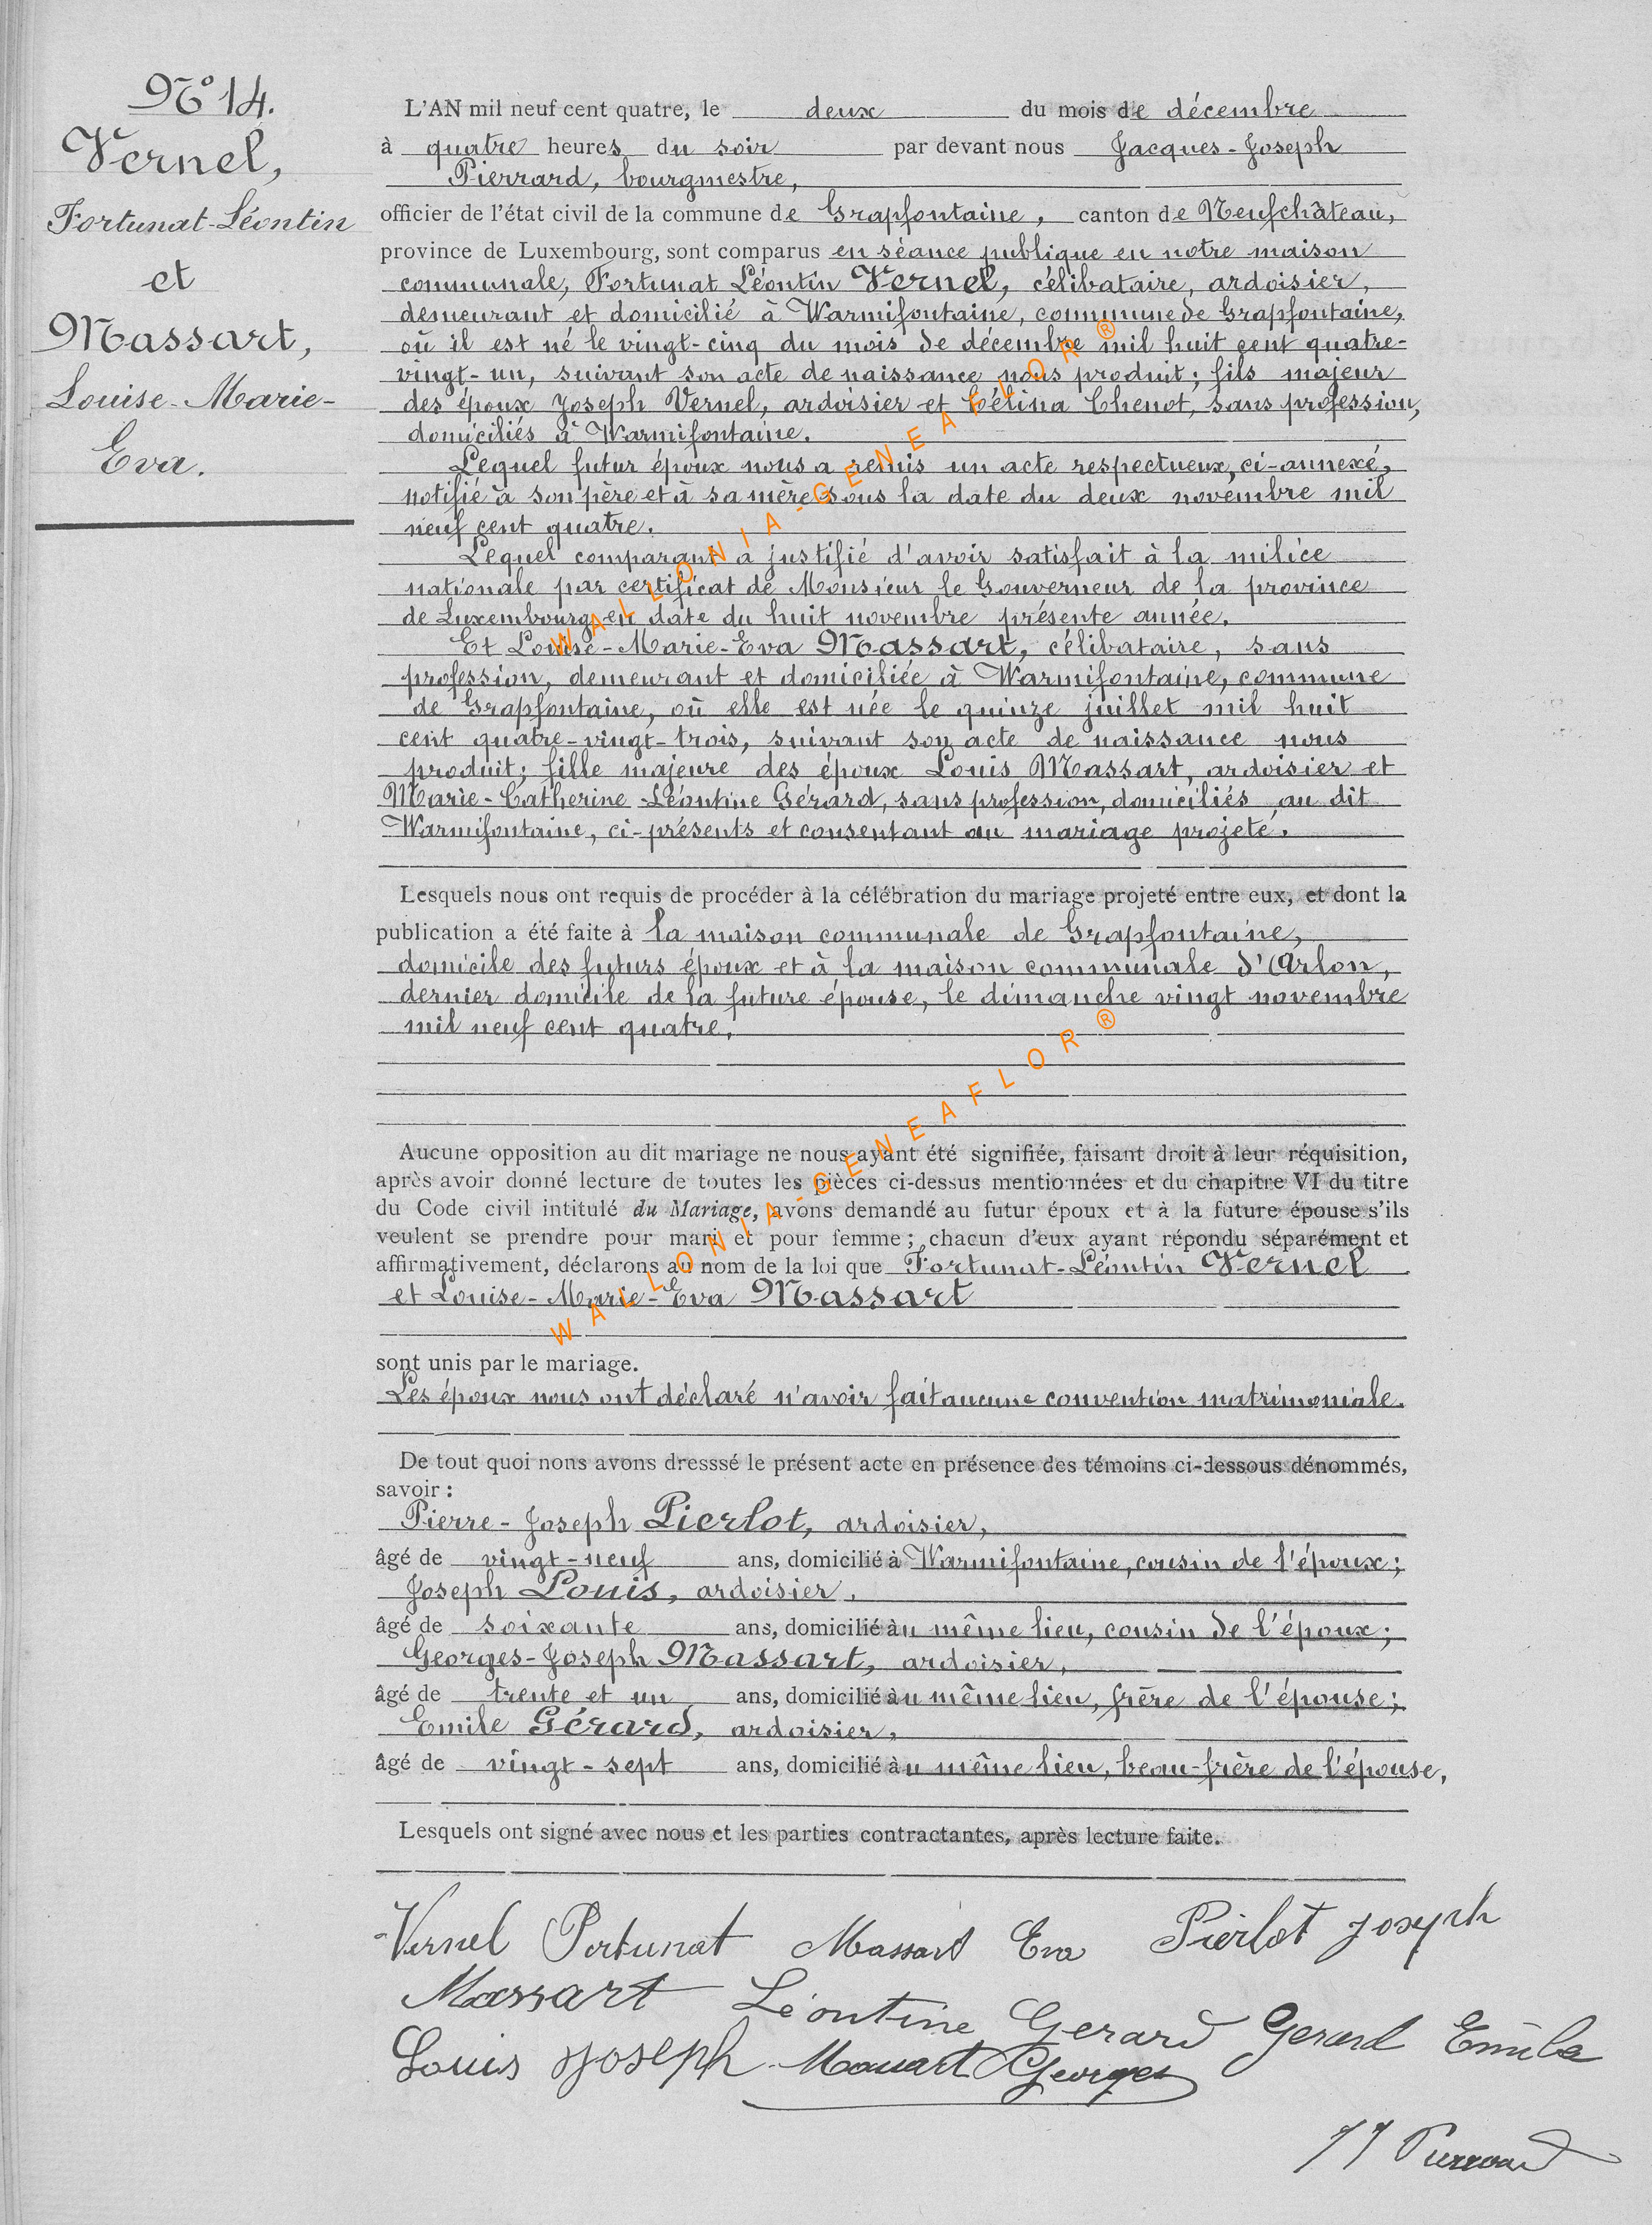 N° 14.
Vernel,
Fortunat-Léontin
et
Massart,
Louise-Marie-
Eva.
L'AN mil neuf cent quatre, le deux du mois de décembre
à quatre heures du soir par devant nous Jacques-Joseph
Pierrard, bourgmestre,
officier de l'état civil de la commune de Grapfontaine, canton de Neufchâteau,
province de Luxembourg, sont comparus en séance publique en notre maison
communale, Fortunat Léontin Vernel, célibataire, ardoisier,
demeurant et domicilié à Warmifontaine, commune de Grapfontaine,
où il est né le vingt-cinq du mois de décembre mil huit cent quatre-
vingt-un, suivant son acte de naissance nous produit; fils majeur
des époux Joseph Vernel, ardoisier et Célina Chenot, sans profession,
domiciliés à Warmifontaine.
Lequel futur époux nous a remis un acte respectueux, ci-annexé,
notifié à son père et à sa mère sous la date du deux novembre mil
neuf cent quatre.
Lequel comparant a justifié d'avoir satisfait à la milice
nationale par certificat de Monsieur le Gouverneur de la province
de Luxembourg en date du huit novembre présente année.
Et Louise-Marie-Eva Massart, célibataire, sans
profession, demeurant et domiciliée à Warmifontaine, commune
de Grapfontaine, où elle est née le quinze juillet mil huit
cent quatre-vingt-trois, suivant son acte de naissance nous
produit; fille majeure des époux Louis Massart, ardoisier et
Marie-Catherine-Léontine Gérard, sans profession, domiciliés au dit
Warmifontaine, ci-présents et consentant au mariage projeté.
Lesquels nous ont requis de procéder à la célébration du mariage projeté entre eux, et dont la
publication a été faite à la maison communale de Grapfontaine,
domicile des futurs époux et à la maison communale d'Arlon,
dernier domicile de la future épouse, le dimanche vingt novembre
mil neuf cent quatre.
Aucune opposition au dit mariage ne nous ayant été signifiée, faisant droit à leur réquisition,
après avoir donné lecture de toutes les pièces ci-dessus mentionnées et du chapitre VI du titre
du Code civil intitulé du Mariage, avons demandé au futur époux et à la future épouse s'ils
veulent se prendre pour mari et pour femme; chacun d'eux ayant répondu séparément et
affirmativement, déclarons au nom de la loi que Fortunat-Léontin Vernel
et Louise-Marie-Eva Massart
sont unis par le mariage.
Les époux nous ont déclaré n'avoir fait aucune convention matrimoniale.
De tout quoi nous avons dresssé le présent acte en présence des témoins ci-dessous dénommés,
savoir :
Pierre-Joseph Pierlot, ardoisier,
âgé de vingt-neuf ans, domicilié à Warmifontaine, cousin de l'époux;
Joseph Louis, ardoisier,
âgé de soixante ans, domicilié au même lieu, cousin de l'époux;
Georges-Joseph Massart, ardoisier,
âgé de trente et un ans, domicilié au même lieu, frère de l'épouse;
Emile Gérard, ardoisier,
âgé de vingt-sept ans, domicilié au même lieu, beau-frère de l'épouse.
Lesquels ont signé avec nous et les parties contractantes, après lecture faite.
Vernel Fortunat Massart Eva Pierlot Joseph
Massart Léontine Gerard Gerard Emile
Louis Joseph Massart Georges
JJ Pierrard
WALLONIA-GENEAFLOR®
WALLONIA-GENEAFLOR®